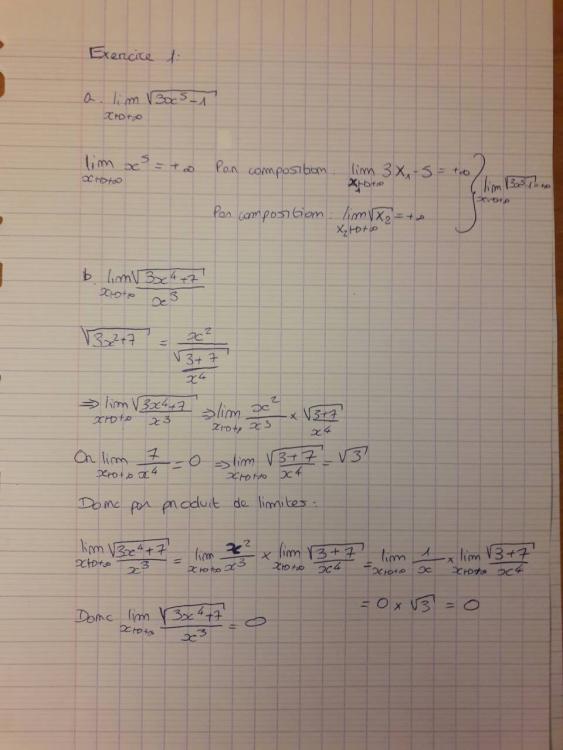 Exercice 1:
a. lim x→+∞ √(3x⁵-1)
lim x→+∞ x⁵ = +∞ Par composition: lim X₁→+∞ 3X₁-5 = +∞
Par composition: lim X₂→+∞ √X₂ = +∞ } lim x→+∞ √(3x⁵-1) = +∞
b. lim x→+∞ √(3x⁴+7)/x³
√(3x²+7) = x²/(√(3+7)/x⁴)
⇒ lim x→+∞ √(3x⁴+7)/x³ ⇒ lim x→+∞ x²/x³ × √(3+7)/x⁴
On lim x→+∞ 7/x⁴ = 0 ⇒ lim x→+∞ √(3+7)/x⁴ = √3
Donc par produit de limites:
lim x→+∞ √(3x⁴+7)/x³ = lim x→+∞ x²/x³ × lim x→+∞ √(3+7)/x⁴ = lim x→+∞ 1/x × lim x→+∞ √(3+7)/x⁴
= 0 × √3 = 0
Donc lim x→+∞ √(3x⁴+7)/x³ = 0